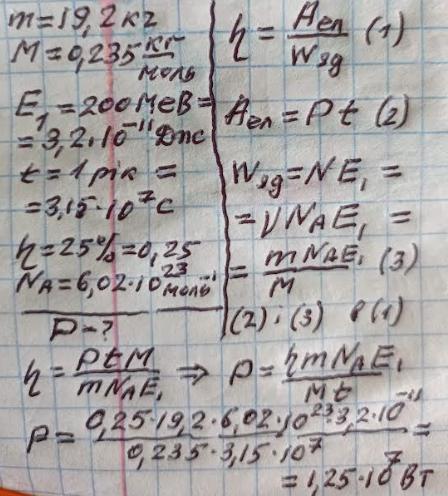 m = 19,2 кг
M = 0,235 кг/моль
E₁ = 200 МеВ =
= 3,2·10⁻¹¹ Дж
t = 1 рік =
= 3,15·10⁷ с
η = 25% = 0,25
N_A = 6,02·10²³ моль⁻¹
P - ?
η = Aел/Wяд (1)
Aел = P t (2)
Wяд = N E₁ =
= ν N_A E₁ =
= m N_A E₁/M (3)
(2) і (3) в (1)
η = P t M/m N_A E₁ ⇒ P = η m N_A E₁/M t
P = 0,25·19,2·6,02·10²³·3,2·10⁻¹¹/0,235·3,15·10⁷ =
= 1,25·10⁷ Вт